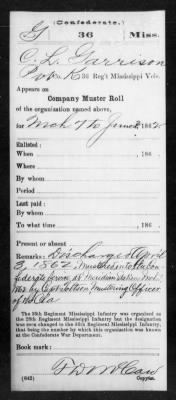 (Confederate.)
G 36 Miss.
C. L. Garrison
Pvt. Co. K, 36 Reg't Mississippi Vols.
Appears on
Company Muster Roll
of the organization named above,
for Mch 7 to June 30, 1862.
Enlisted:
When , 186 .
Where
By whom
Period
Last paid:
By whom
To what time , 186 .
Present or absent
Remarks: Discharged April
3, 1862. Mustered into the Con
federate service at Meridian
by Mustering Officer
The 36th Regiment Mississippi Infantry was organized as
the 25th Regiment Mississippi Infantry but the designation
was soon changed to the 36th Regiment Mississippi Infantry,
that being the number by which this organization was known
at the Confederate War Department.
Book mark:
(642) Copyist.